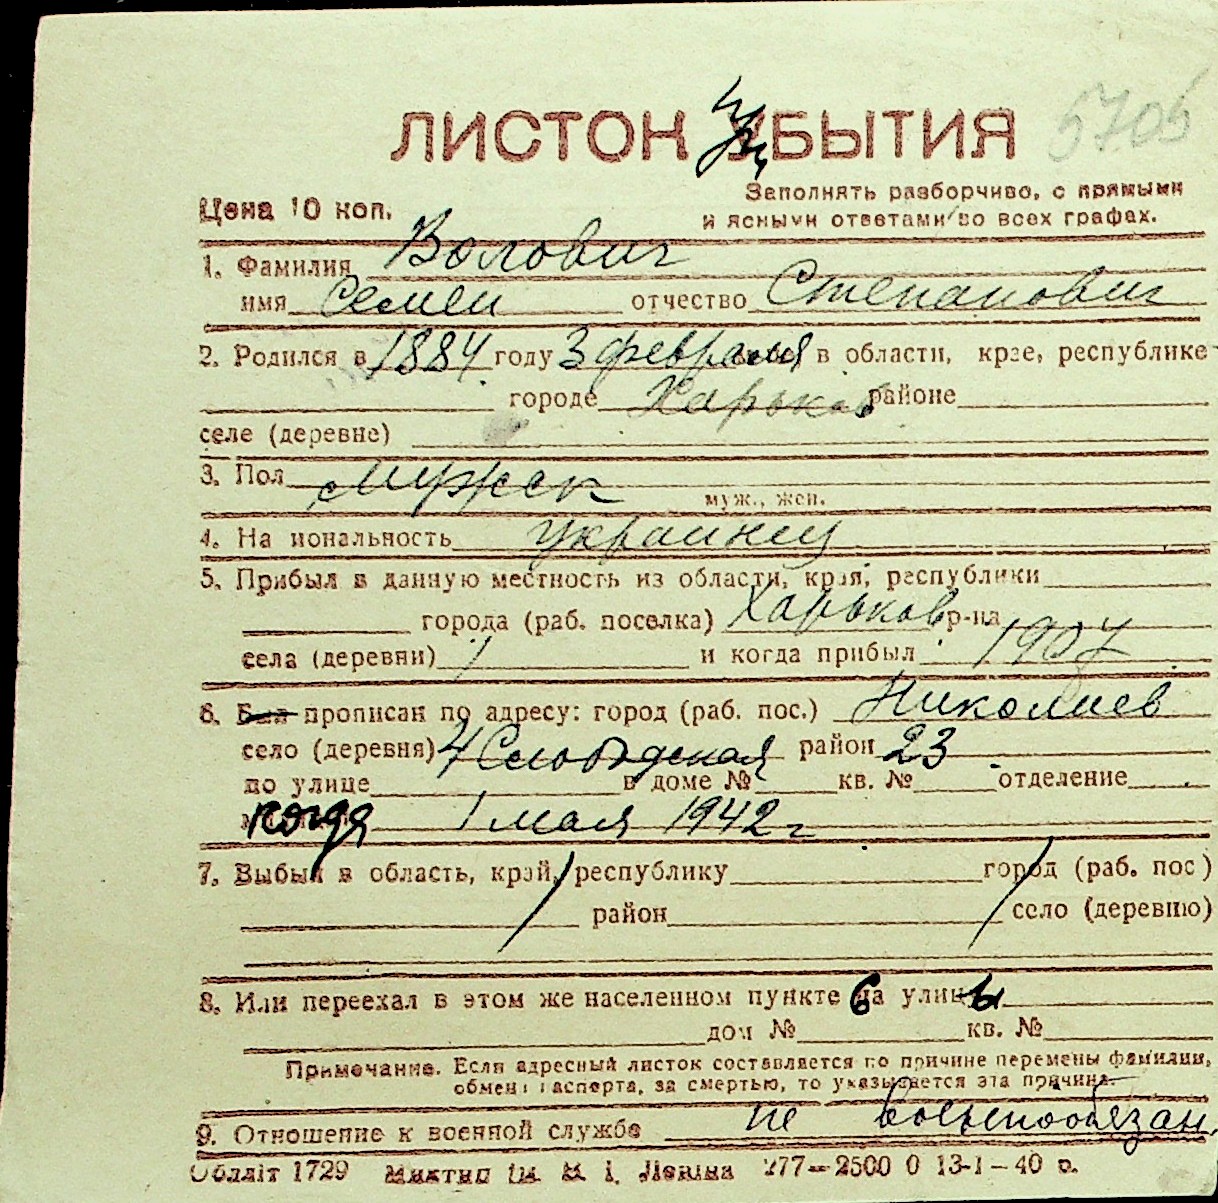 5705
ЛИСТОК УБЫТИЯ
Заполнять разборчиво, с прямыми
Цена 10 коп.
и ясными ответами во всех графах.
1. Фамилия Волович
имя Семен отчество Степанович
2. Родился в 1884 году 3 февраля в области, крае, республике
городе Харьков районе
селе (деревне)
3. Пол мужск
муж., жен.
4. На иональность украинец
5. Прибыл в данную местность из области, края, республики
города (раб. поселка) Харьков р-на
села (деревни) и когда прибыл 1907
6. Был прописан по адресу: город (раб. пос.) Николаев
село (деревня) 4 Слободская район 23
по улице в доме № кв. № отделение
когда 1 мая 1942 г
7. Выбыл в область, край, республику город (раб. пос)
район село (деревню)
8. Или переехал в этом же населенном пункте на улицы
дом № кв. №
Примечание. Если адресный листок составляется по причине перемены фамилии,
обмена паспорта, за смертью, то указывается эта причина.
9. Отношение к военной службе не военнообязан.
Обллiт 1729 им. В. І. Ленiна 277—2500 0 13-1—40 р.